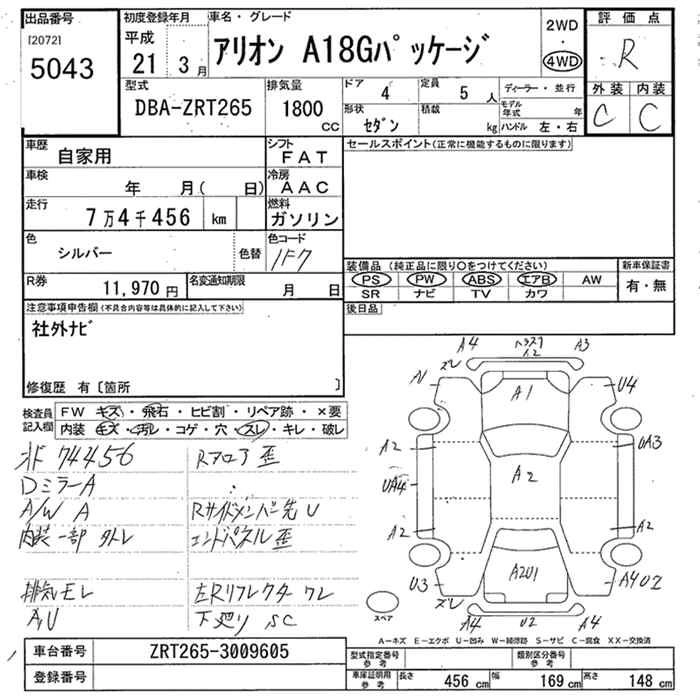 出品番号
[2072]
5043
初度登録年月
平成
21 3 月
車名・グレード
アリオン A18Gパッケージ
2WD
・
4WD
評価点
R
外装 内装
C C
型式
DBA-ZRT265
排気量
1800
CC
ドア
4
定員
5 人
形状
セダン
積載
kg
ディーラー・並行
モデル年式 年
ハンドル 左・右
車歴
自家用
シフト
FAT
車検
年 月( 日)
冷房
AAC
走行
7万4千456 km
燃料
ガソリン
色
シルバー
色替
色コード
1F7
R券
11,970 円
名変通知期限
月 日
セールスポイント(正常に機能するものに限ります)
装備品 (純正品に限り〇をつけてください)
PS PW ABS エアB AW
SR ナビ TV カワ
新車保証書
有・無
後日品
注意事項申告欄(不具合内容等は具体的に記入して下さい)
社外ナビ
修復歴 有〔箇所 〕
検査員記入欄
FW キズ・飛石・ヒビ割・リペア跡・×要
内装 キズ・汚レ・コゲ・穴・スレ・キレ・破レ
メ 74456
DミラーA
A/W A
内装一部外レ
排気モレ
A,U
Rフロア歪
Rサイドメンバー先U
エンドパネル歪
左Rリフレクターワレ
下廻りSC
A4
A3
ズレ
A1
U4
A2
UA3
UA4
A2
A2
A2
U3
A2U1
A4U2
ズレ
A4
U2
A4
スペア
A-キズ E-エクボ U-凹み W-補修跡 S-サビ C-腐食 XX-交換済
車台番号
ZRT265-3009605
登録番号
型式指定番号
参考
類別区分番号
参考
車庫証明用
参考
長さ
456 cm
幅
169 cm
高さ
148 cm